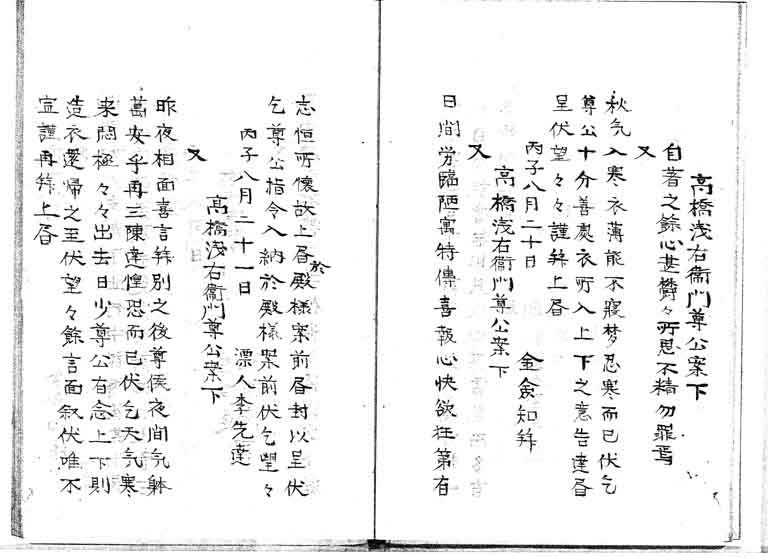 高橋浅右衛門尊公案下
自著之餘心甚欝々所思不精勿罪焉
又
秋気入寒衣薄能不寢梦忍寒而已伏乞
尊公十分善處衣所入上下之意告達昏
呈伏望々々謹拜上昏
丙子八月二十日
金僉知拜
高橋浅右衛門尊公案下
又
日間労臨陋寓特傳喜報心快欲狂第有
志恒所懐故上昏於殿様案前昏封以呈伏
乞尊公指令入納於殿様案前伏乞望々
丙子八月二十一日
漂人李先達
高橋浅右衛門尊公案下
又
昨夜相面喜言拜別之後尊侯夜間気躰
萬安乎再三陳達惶恐而已伏乞天気寒
来悶極々々出去日少尊公有念上下則
造衣還帰之至伏望々餘言面叙伏唯不
宣謹再拜上昏